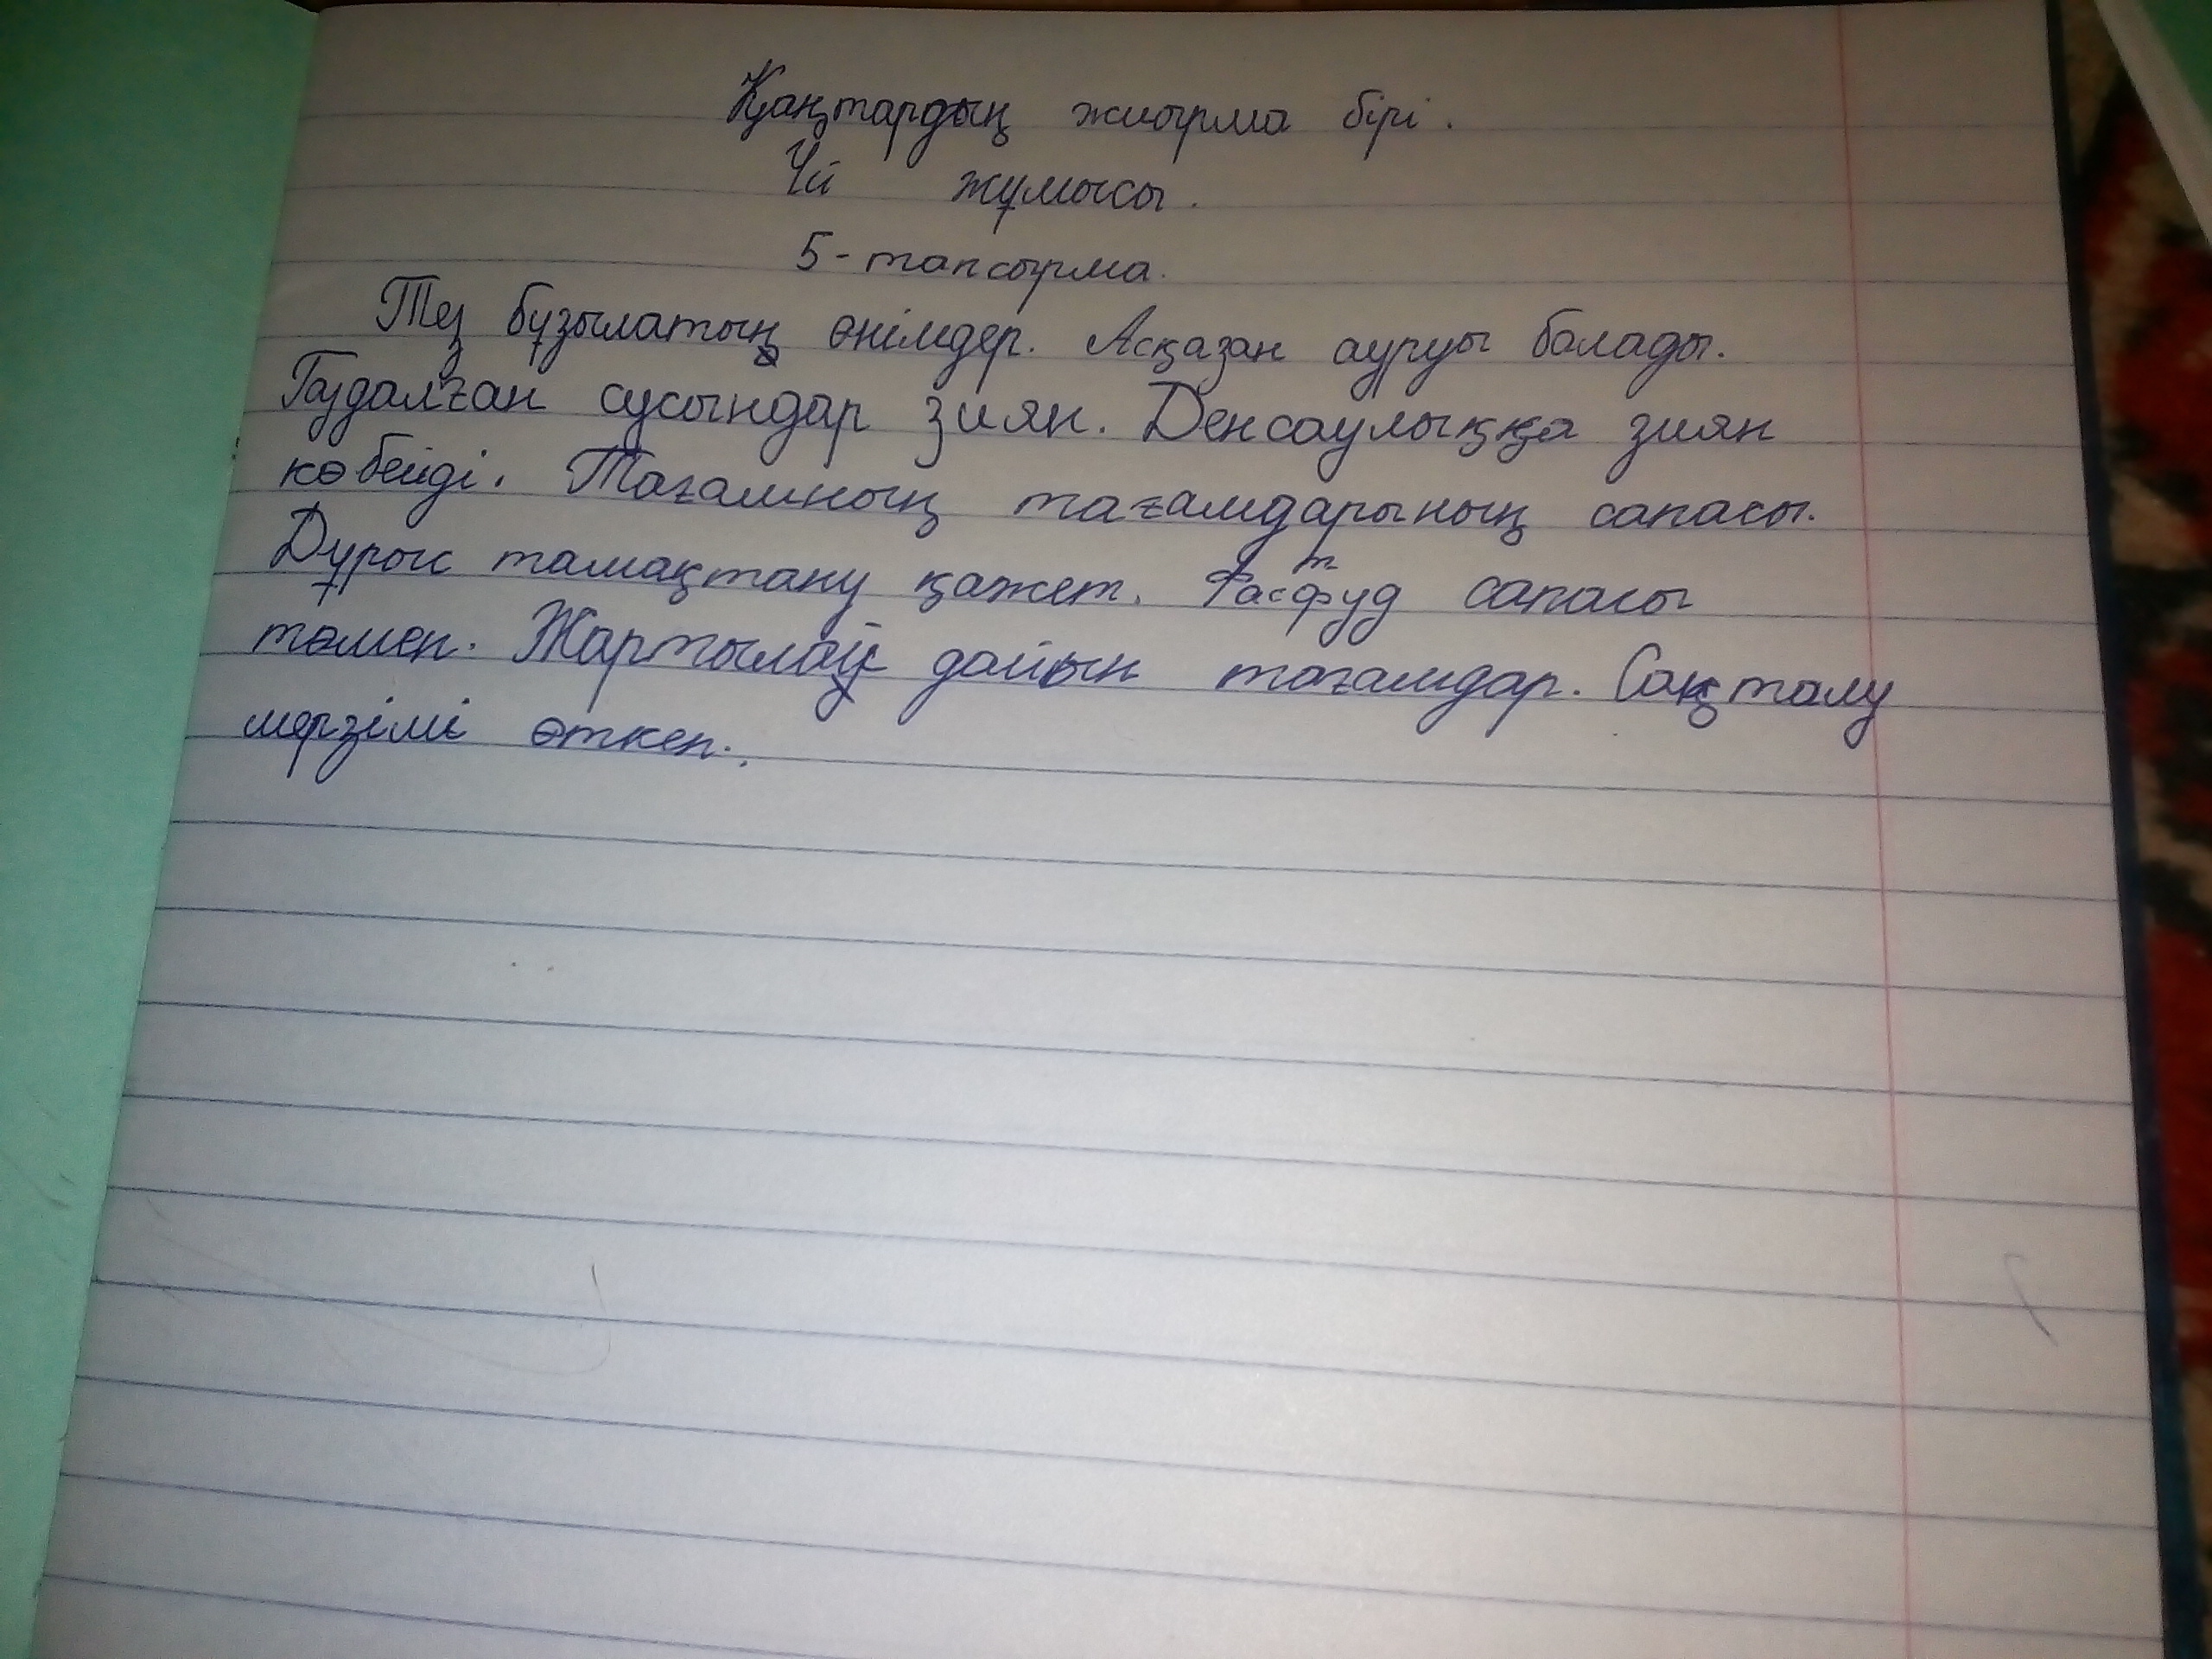 Қаңтардың жиырма бірі.
Үй жұмысы.
5-тапсырма.
Тез бұзылатың өнімдер. Асқазан ауруы болады.
Газдалған сусындар зиян. Денсаулыққа зиян
көбейді. Тағамның тағамдарының сапасы.
Дұрыс тамақтану қажет. Фастфуд сапасы
төмен. Жартылай дайын тағамдар. Сақталу
мерзімі өткен.